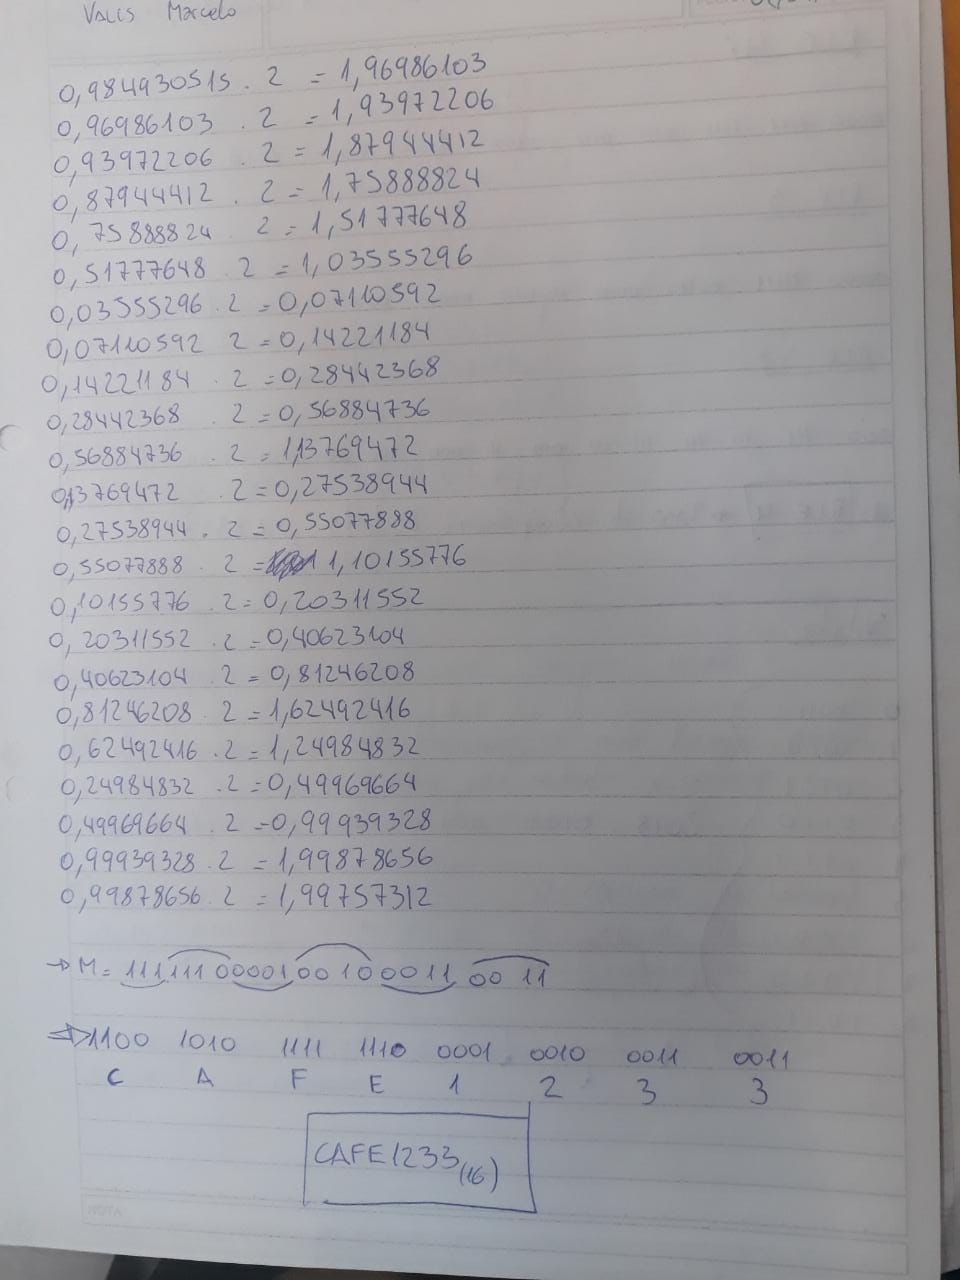 Valls Marcelo
0,984930515 . 2 = 1,96986103
0,96986103 . 2 = 1,93972206
0,93972206 . 2 = 1,87944412
0,87944412 . 2 = 1,75888824
0,75888824 2 = 1,51777648
0,51777648 . 2 = 1,03555296
0,03555296 . 2 = 0,07110592
0,07110592 2 = 0,14221184
0,14221184 . 2 = 0,28442368
0,28442368 . 2 = 0,56884736
0,56884736 . 2 = 1,13769472
0,13769472 . 2 = 0,27538944
0,27538944 . 2 = 0,55077888
0,55077888 . 2 = 1,10155776
0,10155776 . 2 = 0,20311552
0,20311552 . 2 = 0,40623104
0,40623104 . 2 = 0,81246208
0,81246208 . 2 = 1,62492416
0,62492416 . 2 = 1,24984832
0,24984832 . 2 = 0,49969664
0,49969664 . 2 = 0,99939328
0,99939328 . 2 = 1,99878656
0,99878656 . 2 = 1,99757312
→ M = 11111100001001000110011
⇒ 1100 1010 1111 1110 0001 0010 0011 0011
C A F E 1 2 3 3
CAFE1233(16)
NOTA